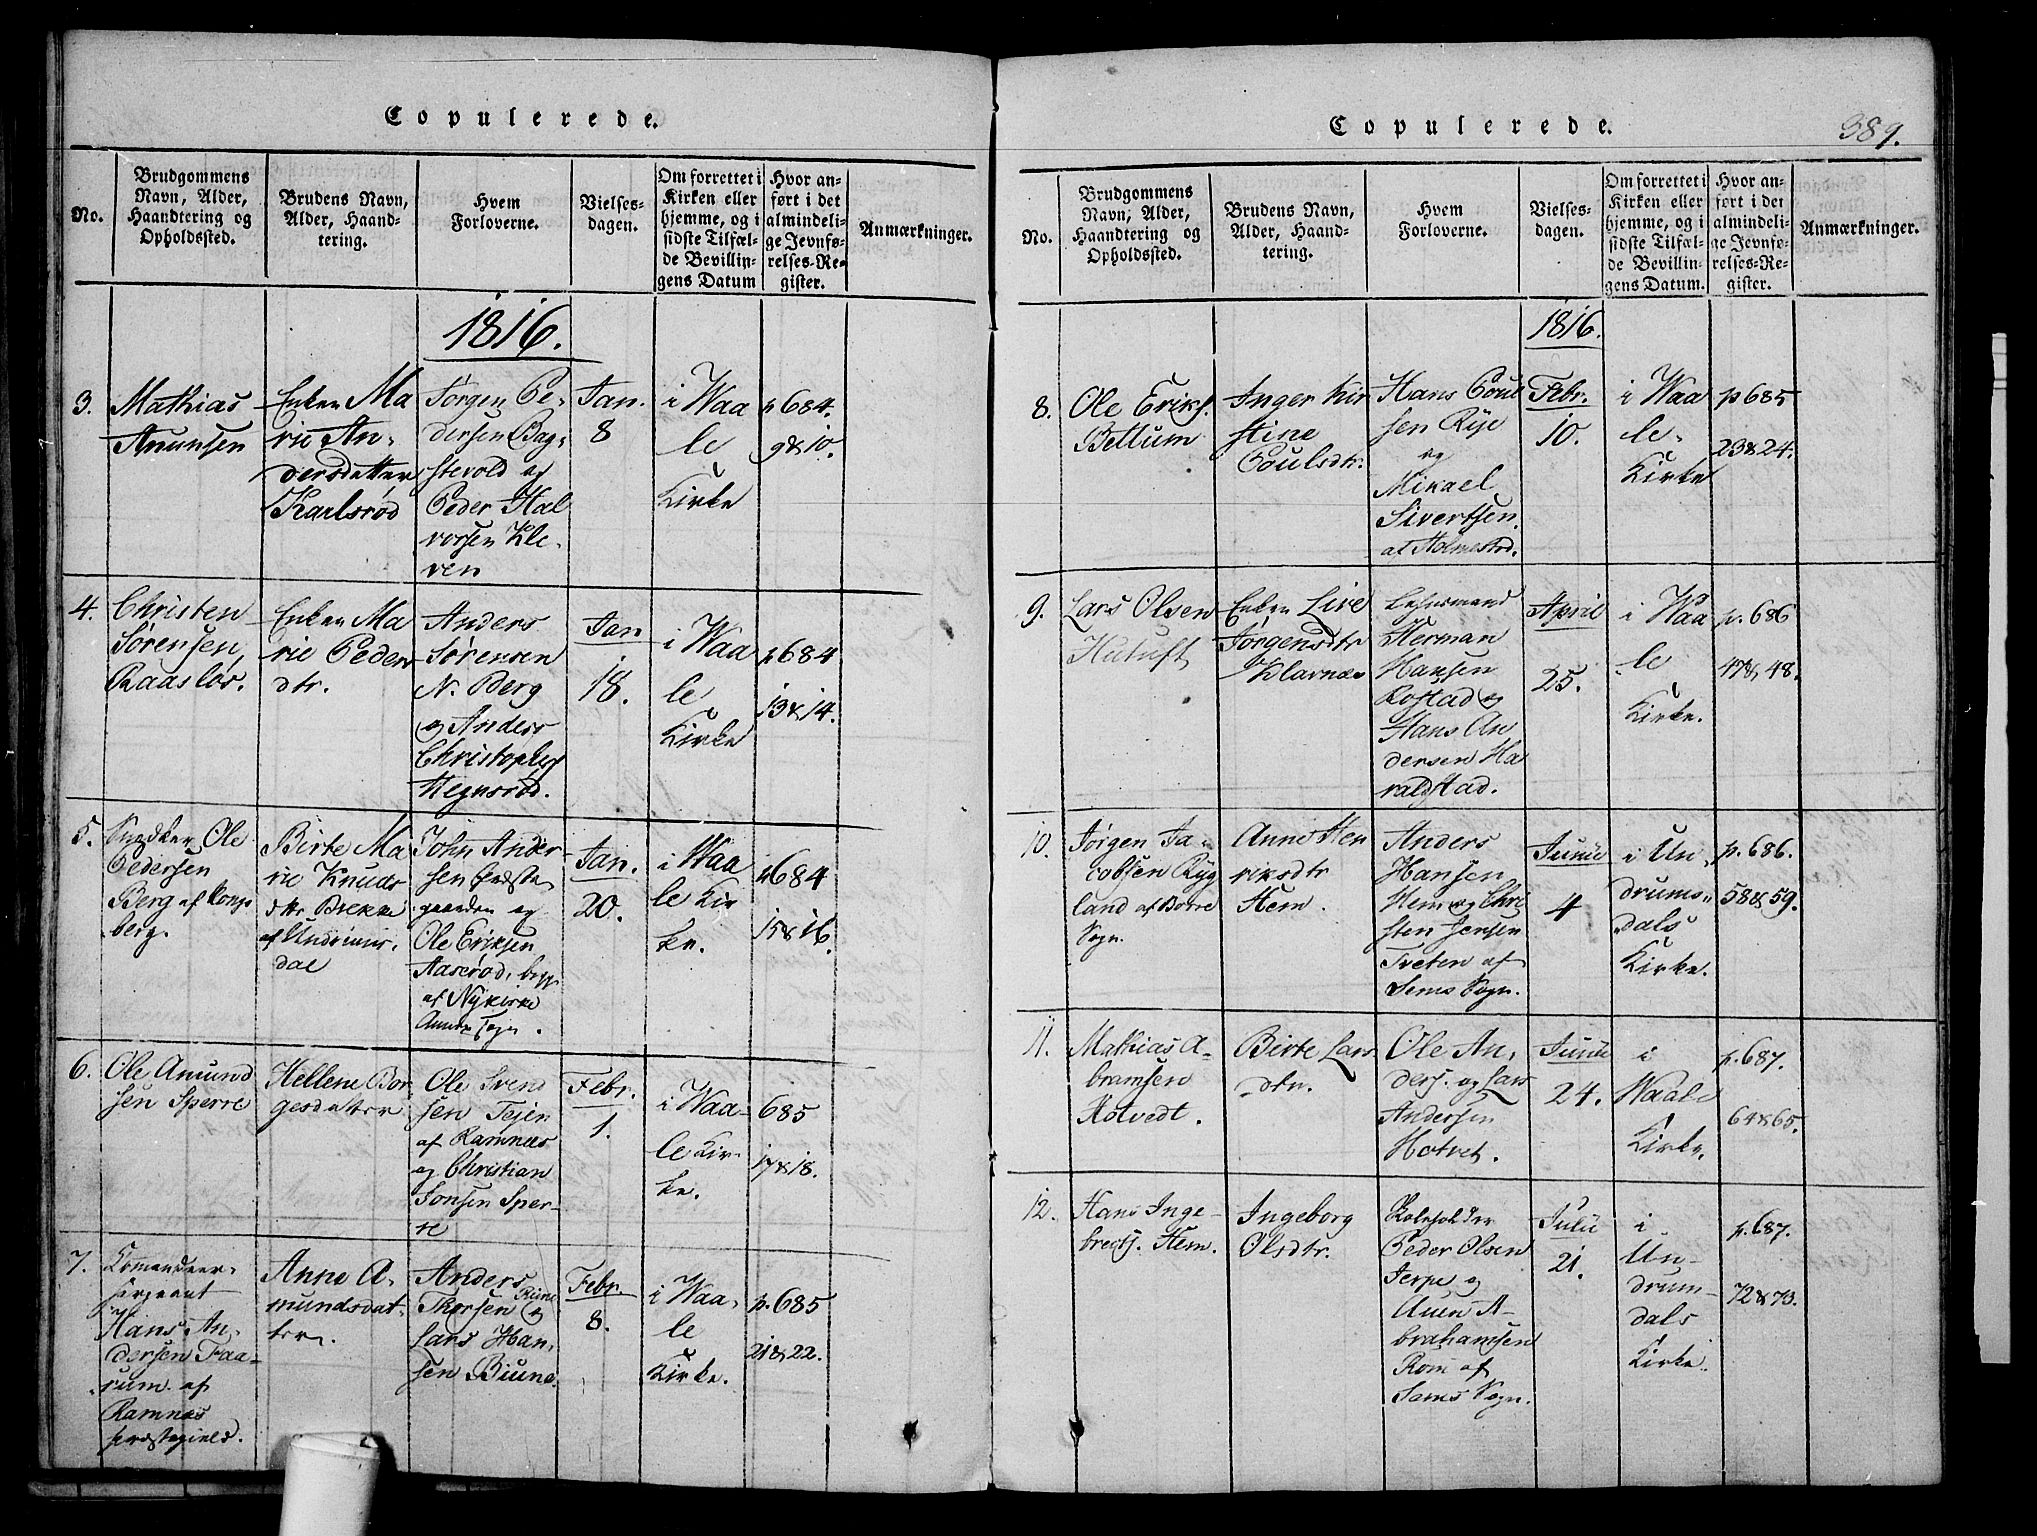 Copulerede.
No.
Brudgommens
Navn, Alder,
Haandtering og
Opholdssted.
Brudens Navn,
Alder, Haand-
tering.
Hvem
Forloverne.
Vielses-
dagen.
Om forrettet i
Kirken eller
hjemme, og i
sidste Tilfæl-
de Bevillin-
gens Datum
Hvor an-
ført i det
almindeli-
ge Jevnfø-
relses-Re-
gister.
Anmærkninger.
1816.
3.
Mathias
Amunsen
Enken Ma
rie An-
dersdatter
Karlsrød
Jørgen Pe-
dersen Bag-
stevold og
Peder Hal
vorsen Kle-
ven
Jan.
8
i Waa
le
Kirke
p 684.
9 & 10.
4.
Christen
Sørensen
Raasløs.
Enken Ma
rie Peders
dtr.
Anders
Sørensen
N. Berg
og Anders
Christophs
Hegnsrød.
Jan
18.
i Waa
le
Kirke
p 684
13 & 14.
5.
Snedker Ole
Pedersen
Berg af Kongs
berg.
Birte Ma
rie Knuds
dtr Brekke
af Undrums-
dal
John Ander-
sen
og
Ole Eriksen
Aaserød, begge
af Nykirke
Annex Sogn.
Jan.
20.
i Waa
le Kir
ke.
p 684
15 & 16.
6.
Ole Amund
sen Sperre
Hellene Bor
gesdatter
Ole Svend
sen Tejen
af Ramnæs
og Christian
Jonsen Sper-
re
Febr.
1.
i Waa-
le Kir-
ke.
685
17 & 18.
7.
Comandeer-
sergeant
Hans An-
dersen Faa-
rum af
Ramnæs
Præstegield.
Anne A-
mundsdat-
ter.
Anders
Thorsen
og
Lars Han-
sen Biune.
Febr.
8.
i Waa-
le
Kirke.
p. 685
21 & 22.
Copulerede.
389.
No.
Brudgommens
Navn, Alder,
Haandtering og
Opholdssted.
Brudens Navn,
Alder, Haand-
tering.
Hvem
Forloverne.
Vielses-
dagen.
Om forrettet i
Kirken eller
hjemme, og i
sidste Tilfæl-
de Bevillin-
gens Datum.
Hvor an-
ført i det
almindeli-
ge Jevnfø-
relses-Re-
gister.
Anmærkninger.
1816.
8.
Ole Eriks.
Bettum
Inger Kir
stine
Poulsdtr.
Hans Poul
sen Rye
og
Mikael
Sivertsen
af Holmestrd.
Febr.
10.
i Waa
le-
Kirke
p 685
23 & 24.
9.
Lars Olsen
Hutuft
Enken Live
Jørgensdtr
Klavnæs
Lehnsmand
Herman
Hansen
Rostad og
Hans An
dersen Ha
raldstad.
April
25.
i Waa
le
Kirke.
p. 686
47 & 48.
10.
Jørgen Ja-
cobsen Ryg
land af Borre
Sogn.
Anne Hen
riksdtr
Hem.
Anders
Hansen
Hem og Chri
sten Jensen
Tveten af
Sems Sogn.
Junii
4
i Un-
drums-
dals
Kirke.
p. 686.
58 & 59.
11.
Mathias A-
bramsen
Hotvedt.
Birte Lars
dtr.
Ole An-
ders. og Lars
Andersen
Hotvet.
Junii
24.
i
Waale
Kirke.
p. 687.
64 & 65.
12.
Hans Inge-
brects. Hem.
Ingeborg
Olsdtr.
Peder Olsen
Jerpe og
Auen A-
brahamsen
Rom af
Sems Sogn.
Julii
21.
i
Un-
drum-
dals
Kirke.
p. 687.
72 & 73.